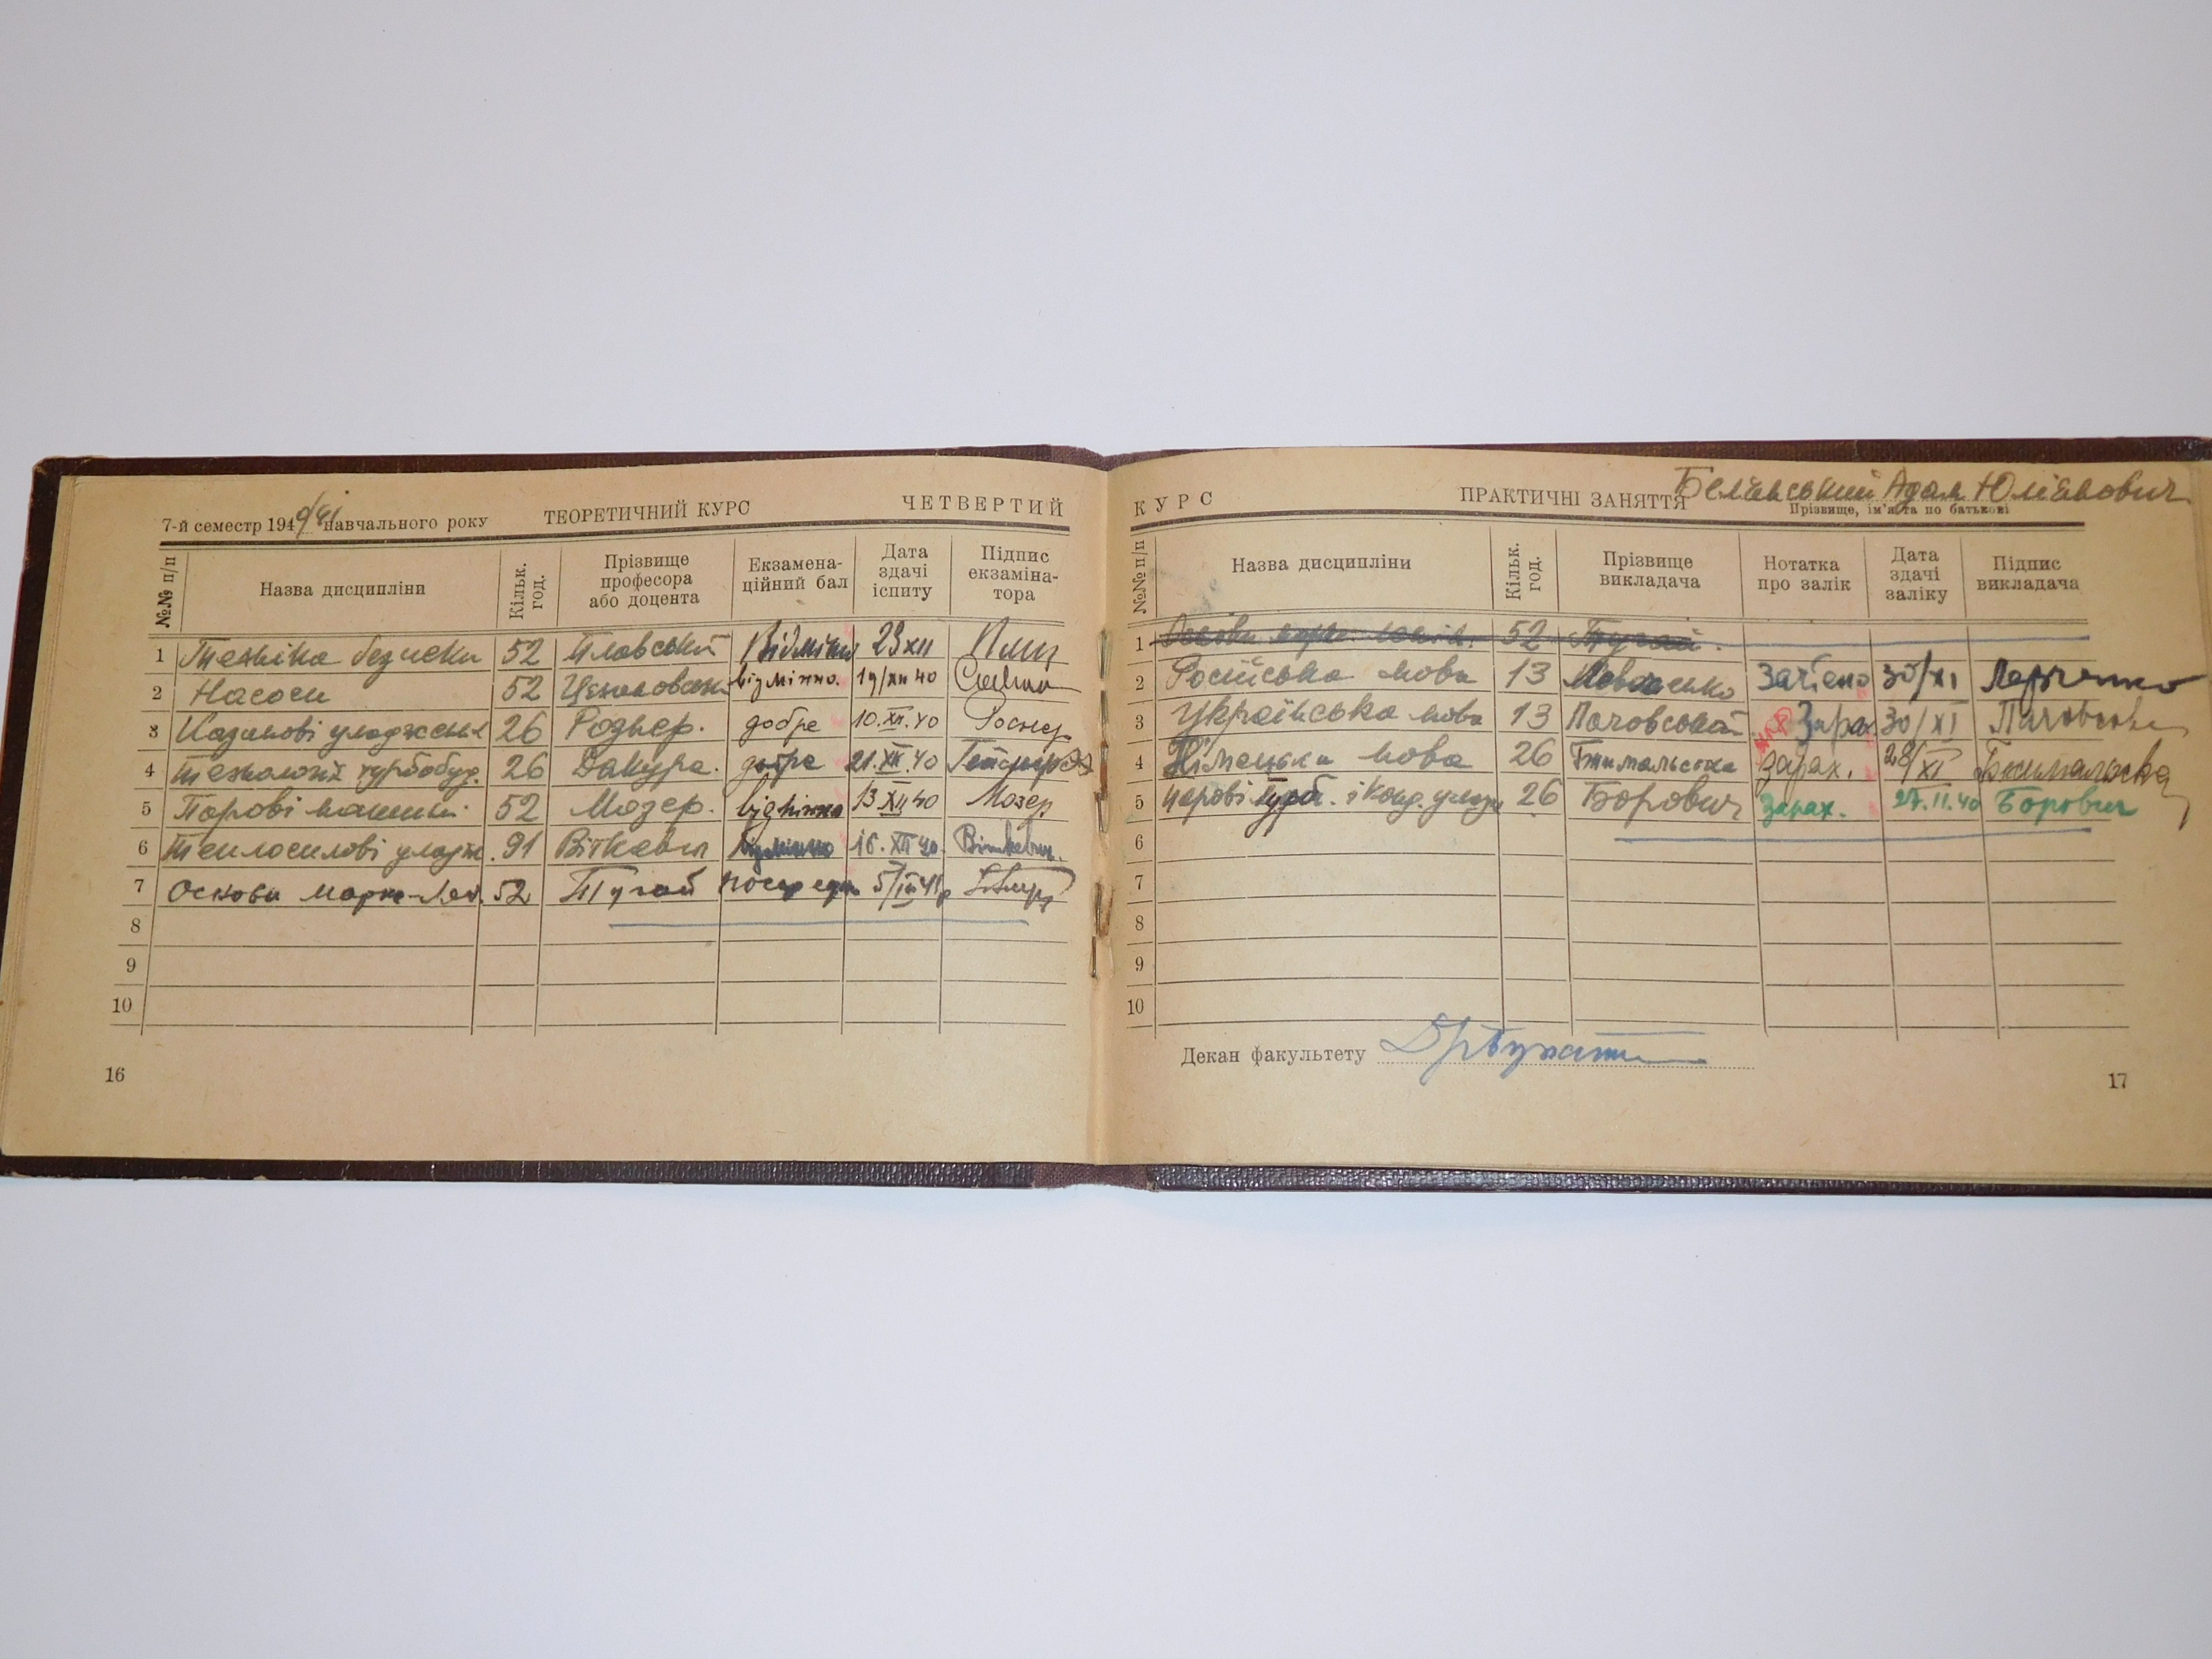 7-й семестр 1940/41 навчального року ТЕОРЕТИЧНИЙ КУРС ЧЕТВЕРТИЙ
№№ п/п Назва дисципліни Кільк. год. Прізвище професора або доцента Екзамена-ційний бал Дата здачі іспиту Підпис екзаміна-тора
1 Техніка безпеки 52 23 XII
2 Насоси 52 відмінно. 19/XII 40
3 26 Рознер. добре 10.XII.40 Рознер
4 турбобуд. 26 Дакура. добре 21.XII.40
5 Парові машини. 52 Мозер. відмінно 13 XII 40 Мозер
6 Теплосилові уладж. 91 Віткевич відмінно 16.XII 40. Віткевич.
7 Основи маркс-лен. 52 Тугай посередн 5/
8
9
10
16
КУРС ПРАКТИЧНІ ЗАНЯТТЯ Адам Юліанович
Прізвище, ім'я та по батькові
№№ п/п Назва дисципліни Кільк. год. Прізвище викладача Нотатка про залік Дата здачі заліку Підпис викладача
1 Основи маркс. ленін. 52 Тугай.
2 Російська мова 13 30/XI
3 Українська мова 13 Зарах 30/XI
4 Німецька мова 26 Зарах. 28/XI
5 Парові турб. і конд. уладж 26 Борович Зарах. 27.11.40 Борович
6
7
8
9
10
Декан факультету
17